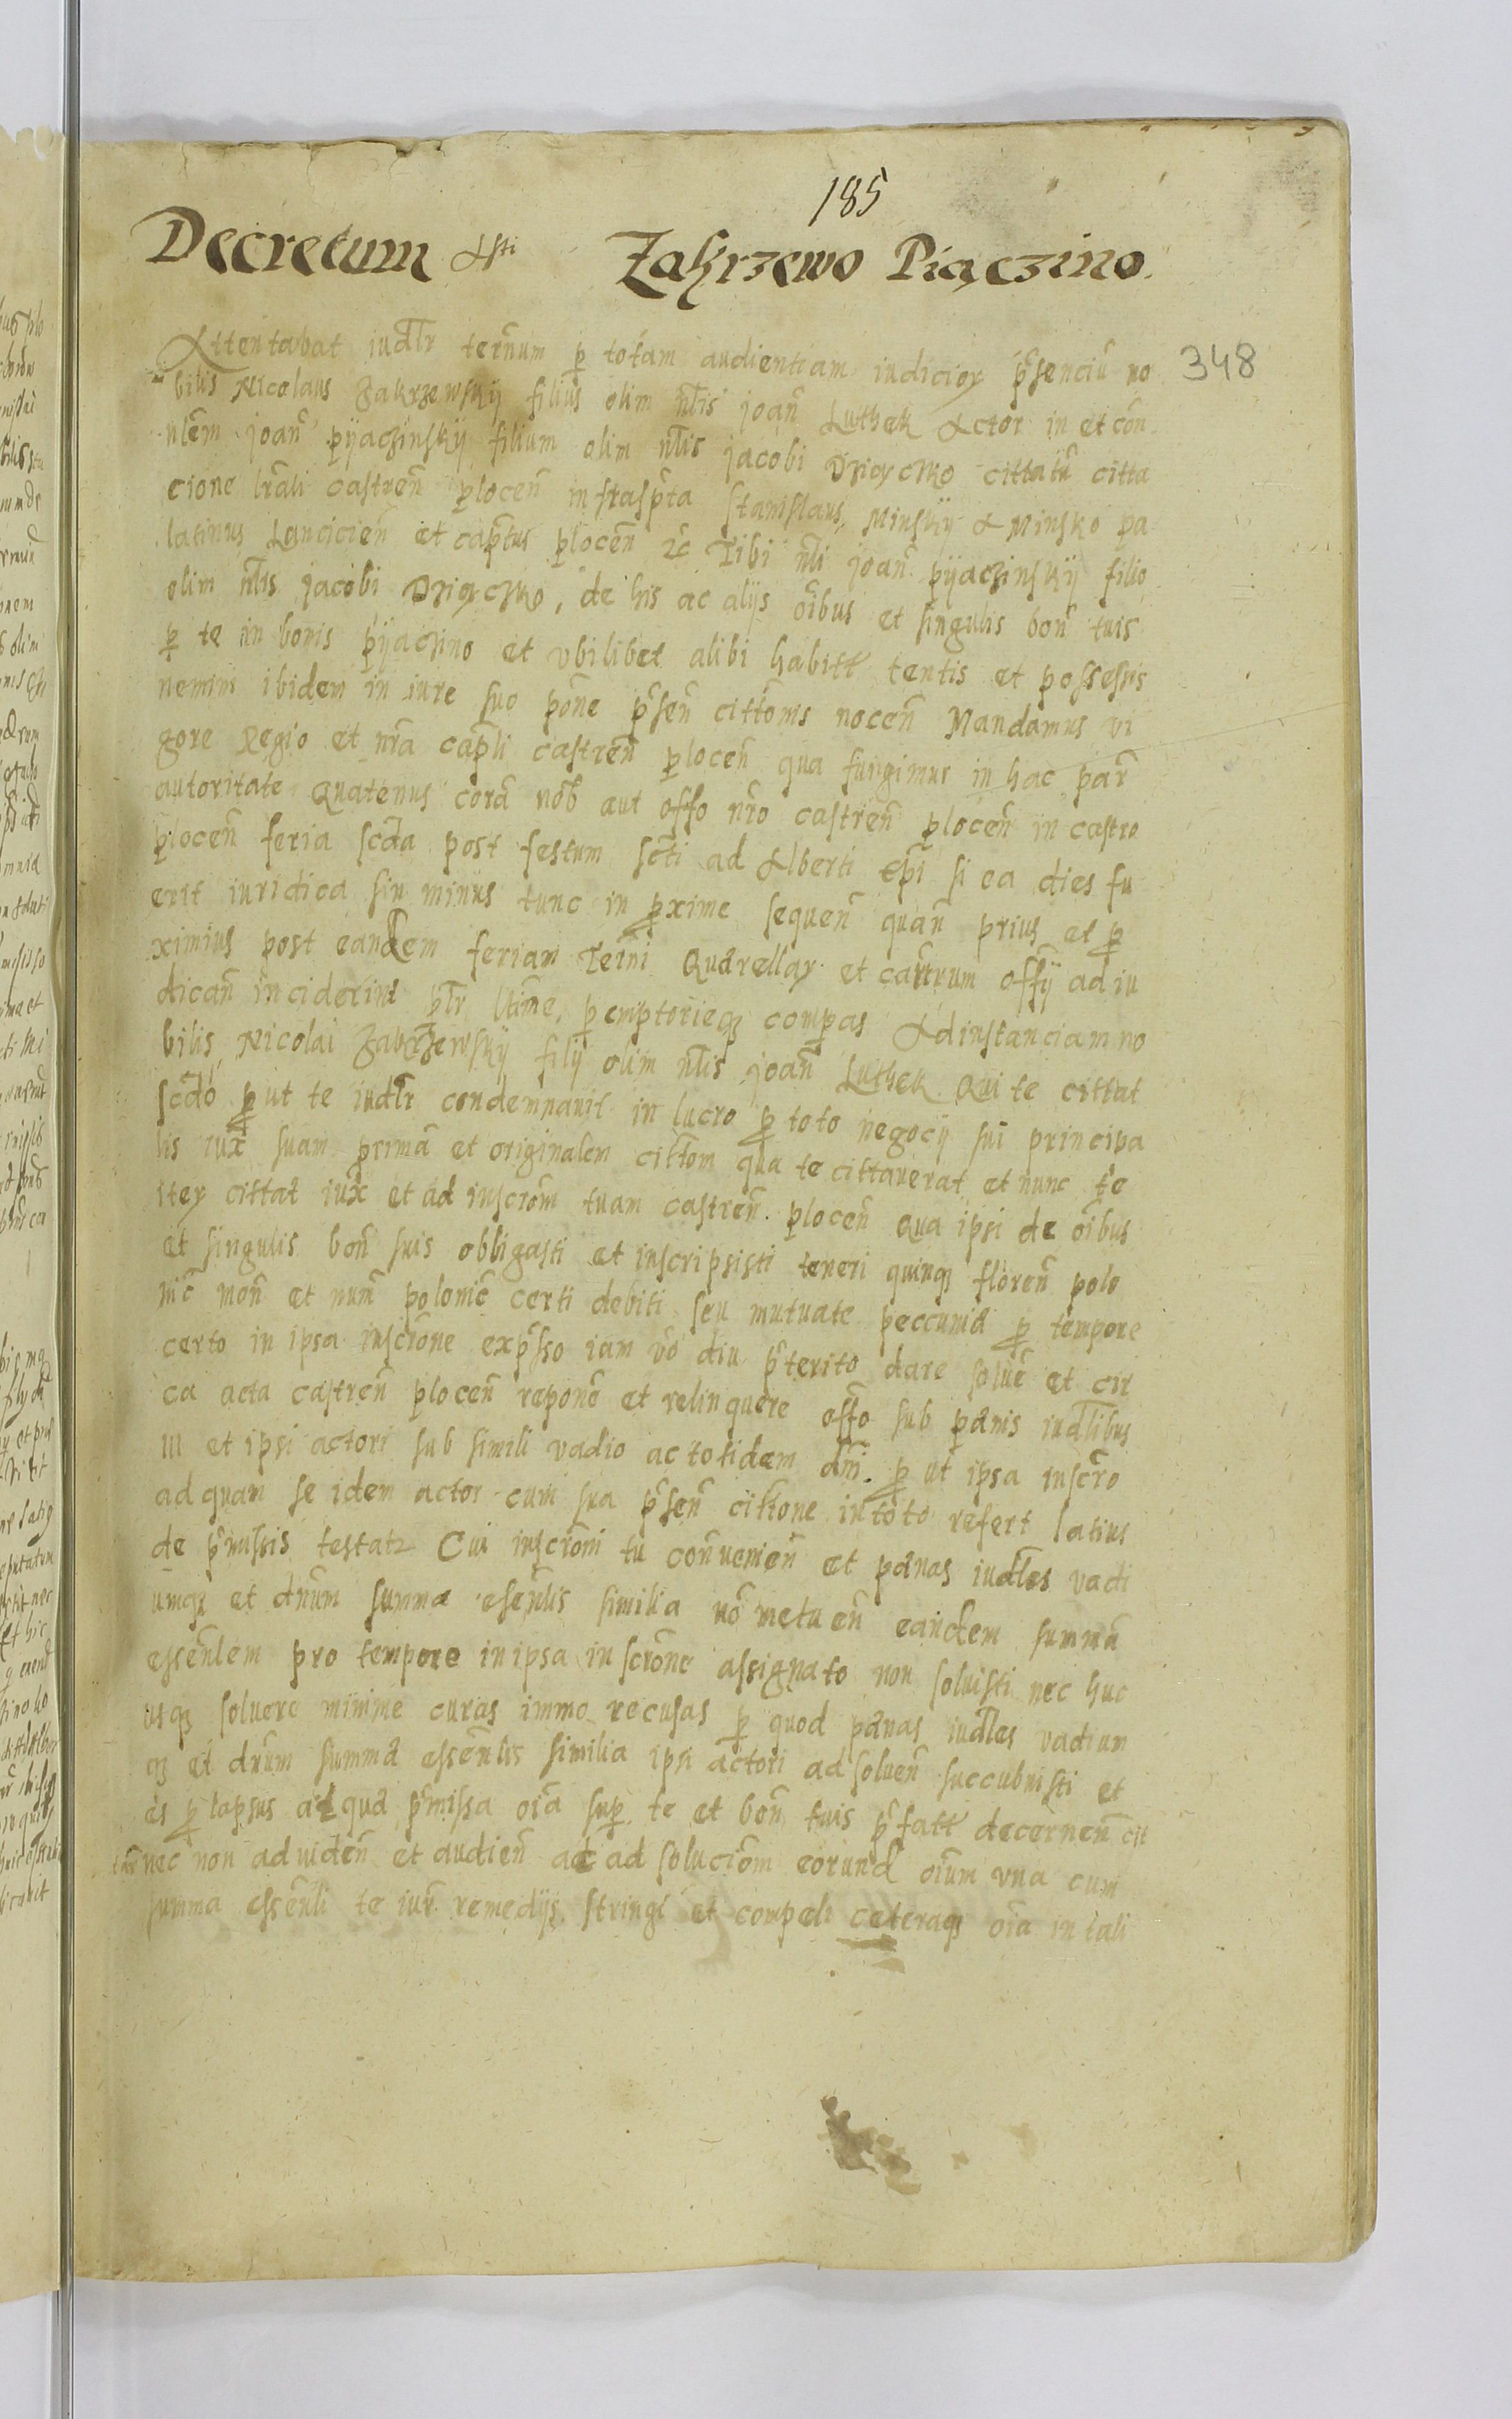 185
Decretum Zakrzewo Piączino.
348
Attentabat iudlr ternum p totam audientiam iudicior psenciu no
bilis Nicolaus Zakrzewskÿ filius olim nlis joan Luthek Actor in et con
nlem joan pÿaczinskÿ filium olim nlis jacobi cittatu citta
cione lrali castren plocen infrascpta Stanislaus Minskÿ A Minsko pa
latinus Lancicien et captus plocen Tibi nli joan pÿaczinskÿ filio
olim nlis jacobi, de his ac alÿs oibus et singulis bon tuis
p te in bonis pÿaczino et vbilibet alibi habitt tentis et possessis
nemini ibidem in iure suo pone psen cittonis nocen Mandamus vi
gore Regio et nra capli castren plocen qua fungimur in hac par
autoritate Quatenus cora nob aut offo nro castren plocen in castro
plocen feria scda post festum scti ad Alberti epi si ea dies fu
erit iuridica sin minus tunc in pxime sequen quan prius et p
ximius post eandem feriam Terni Querellar et caurum offÿ ad iu
dican inciderint ptr ltime, pemptorieq compas Ad instanciam no
bilis Nicolai Zakrzewskÿ filÿ olim nlis joan Luthek Qui te cittat
scdo put te iudlr condemnauit in lucro p toto negocÿ sui principa
lis iux suam prima et originalem cittom qua te cittauerat et nunc te
iter cittat iux et ad inscrom tuam castren plocen qua ipsi de oibus
et singulis bon suis obligasti et inscripsisti teneri quinq floren polo
nic mon et num polonic certi debiti seu mutuate peccunia p tempore
certo in ipsa inscrone expsso iam vo diu pterito dare solue et cir
ca acta castren plocen repone et relinquere offo sub penis iudlibus
III et ipsi actori sub simili vadio ac totidem dni. p ut ipsa inscro
ad quam se idem actor cum sua psen cittone in toto refert latius
de pmissis testatr Cui inscroni tu conuenien et penas iudles vadi
umq et dnum summe esenlis similia no metuen eandem summa
essenlem pro tempore in ipsa inscrone assignato non soluisti nec huc
usq soluere minime curas immo recusas p quod penas iudles vadium
q et dnum summa essenlis similia ipsi actori ad soluen succubuisti et
es plapsus ad qua pmissa oia sup te et bon tuis pfatt decernen cit
nec non ad uiden et audien ac ad solucom eorund oium vna cum
summa essenli te iur remedÿs stringi et compeli ceteraq oia in tali